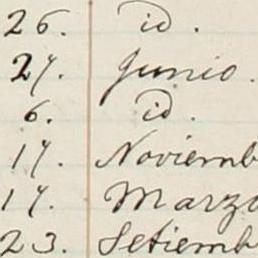 26. id.
27. Junio.
6. id.
17. Noviemb
17. Marzo
23. Setiemb